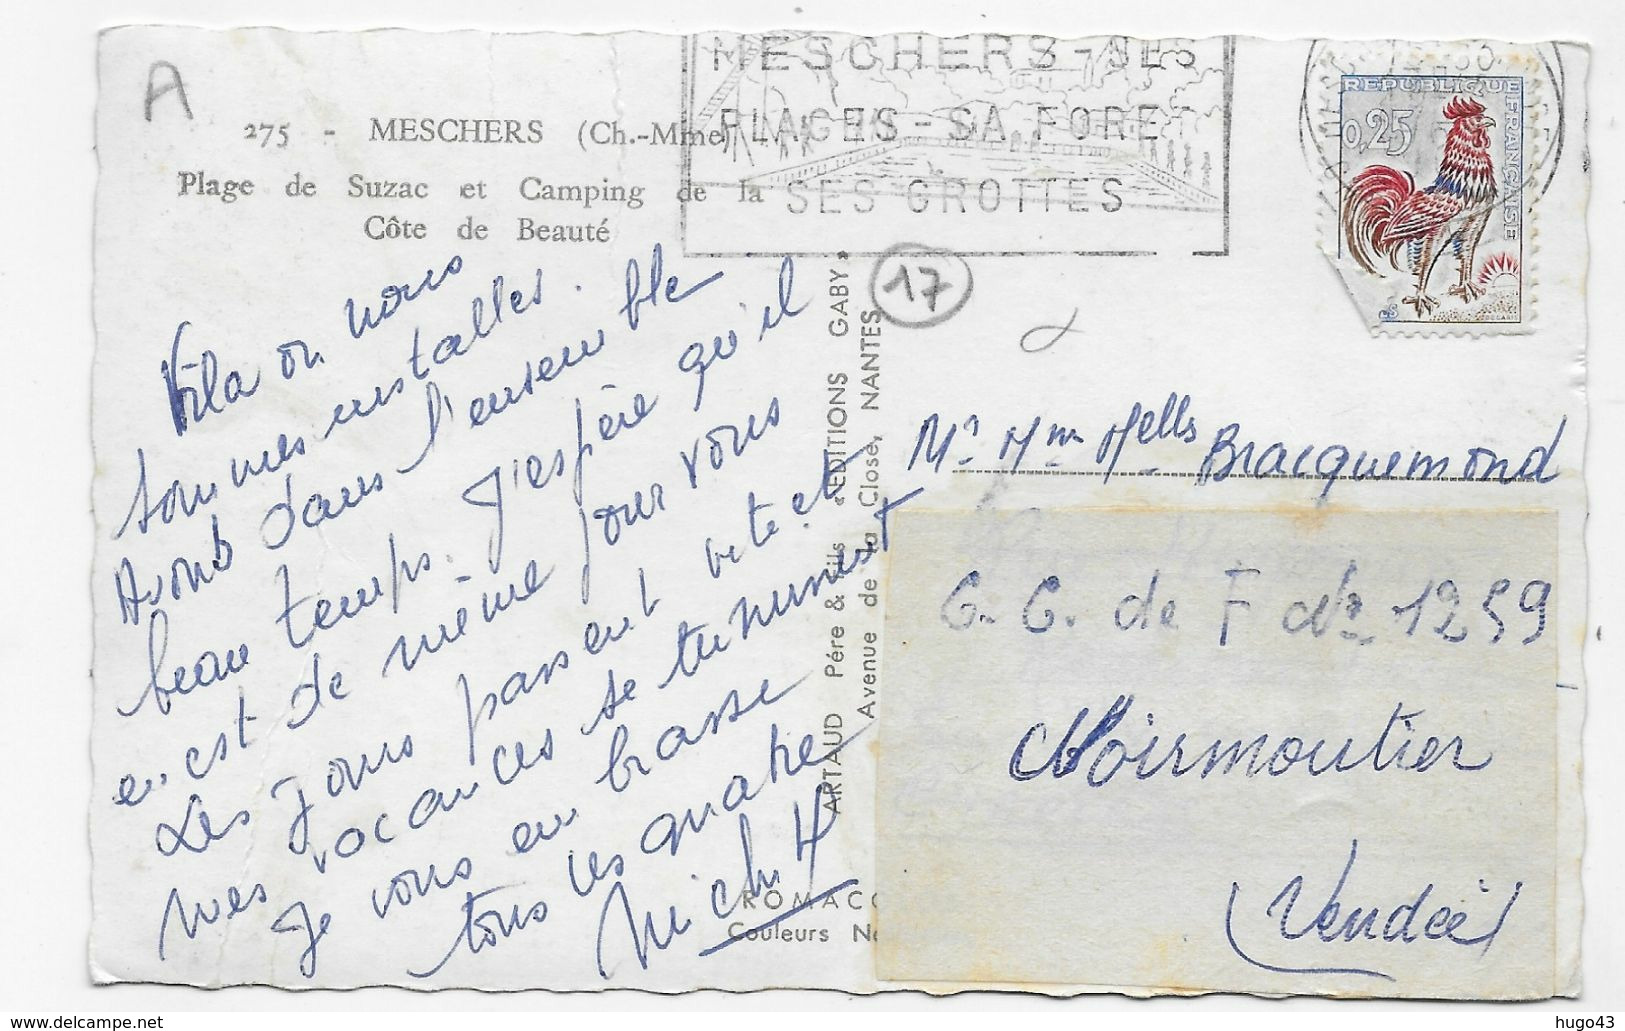 A
275 - MESCHERS (Ch.-Mme)
Plage de Suzac et Camping de la
Côte de Beauté
MESCHERS-SES
PLAGES-SA FORET
SES GROTTES
REPUBLIQUE FRANÇAISE
0,25
17
Vila on nous
sommes installés.
Avons dans l'ensemble
beau temps. J'espère qu'il
en est de même pour vous
Les jours passent vite et
mes vacances se terminent
Je vous embrasse
tous les quatre
Mich H
ARTAUD Père & Fils «EDITIONS GABY»
Avenue de la Close, NANTES
ROMACO
Couleurs Na
Mr Mme Melles Bracquemond
C. C. de F No 1259
Noirmoutier
(Vendée)
hugo43